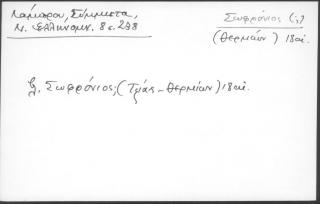 Λάμπρου, Σύμμικτα,
Ν. Ελληνομν. 8 σ. 278
Σωφρόνιος (;)
(Θερμιών) 18 αἰ.
βλ. Σωφρόνιος; (Τζιάς - Θερμίων) 18 αἰ.